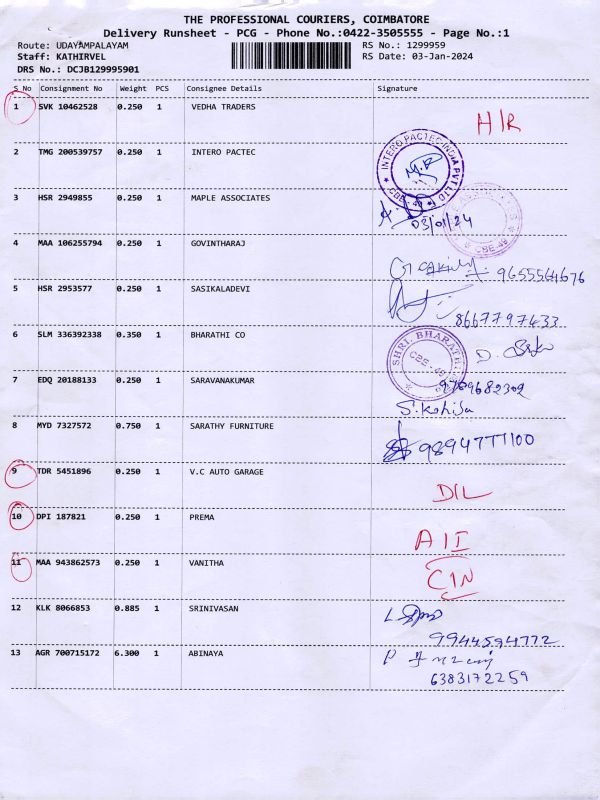 THE PROFESSIONAL COURIERS, COIMBATORE
Delivery Runsheet - PCG - Phone No.:0422-3505555 - Page No.:1
Route: UDAYAMPALAYAM RS No.: 1299959
Staff: KATHIRVEL RS Date: 03-Jan-2024
DRS No.: DCJB129995901
S No Consignment No Weight PCS Consignee Details Signature
1 SVK 10462528 0.250 1 VEDHA TRADERS
H/R
2 TMG 200539757 0.250 1 INTERO PACTEC
INTERO PACTEC INDIA PVT LTD
CBE-49
3 HSR 2949855 0.250 1 MAPLE ASSOCIATES
03/01/24
CBE-49
4 MAA 106255794 0.250 1 GOVINTHARAJ
9655564676
5 HSR 2953577 0.250 1 SASIKALADEVI
8667797433
6 SLM 336392338 0.350 1 BHARATHI CO
SHRI. BHARATHI
CBE-49
7 EDQ 20188133 0.250 1 SARAVANAKUMAR
9789682302
8 MYD 7327572 0.750 1 SARATHY FURNITURE
9894777100
9 TDR 5451896 0.250 1 V.C AUTO GARAGE
D/L
10 DPI 187821 0.250 1 PREMA
A I I
11 MAA 943862573 0.250 1 VANITHA
C/N
12 KLK 8066853 0.885 1 SRINIVASAN
9944594772
13 AGR 700715172 6.300 1 ABINAYA
6383172259